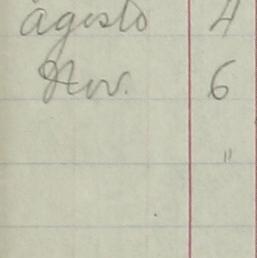 agosto 4
Nov. 6
"